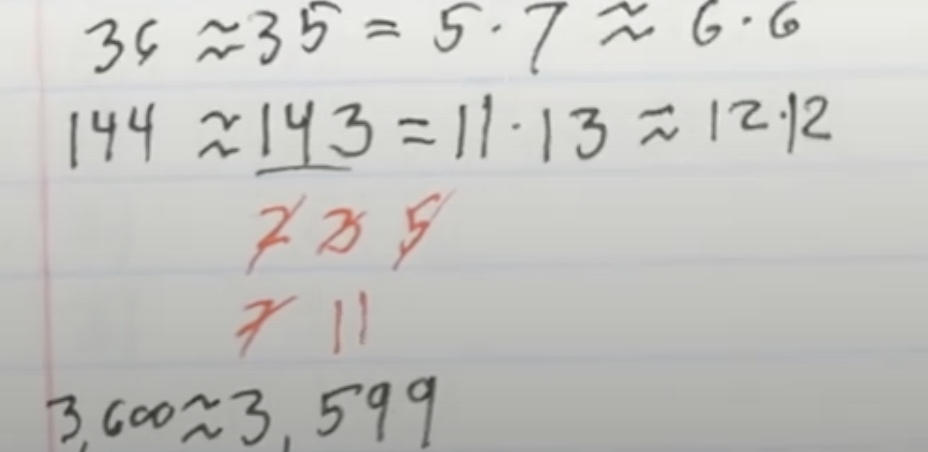 36 ≈ 35 = 5·7 ≈ 6·6
144 ≈ 143 = 11·13 ≈ 12·12
2 3 5
7 11
3,600 ≈ 3,599